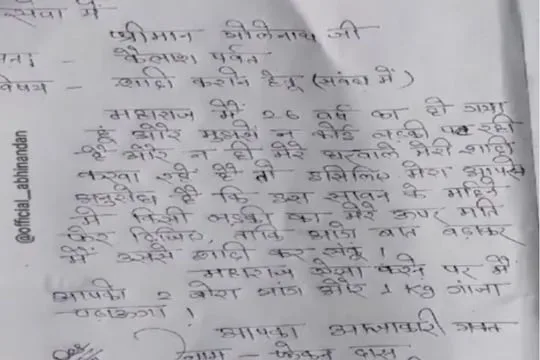 सेवा में
श्रीमान भोलेनाथ जी
पता : - कैलाश पर्वत
विषय - शादी कराने हेतु (संबंध में)
महाराज मैं 26 वर्ष का हो गया
हूं और मुझसे न कोई लड़की पट रही
है और न ही मेरे घरवाले मेरी शादी
करवा रहे हैं तो इसलिए मेरा आपसे
अनुरोध है कि इस सावन के महिने
में किसी लड़की का मेरे ऊपर मति
फेर दिजिए, ताकि आगे बात बढ़ाकर
मैं उससे शादी कर सकूं।
महाराज ऐसा करने पर मैं
आपको 2 बोरा भांग और 1 kg गांजा
चढ़ाऊंगा।
आपका आज्ञाकारी भक्त
नाम -
@official_abhinandan